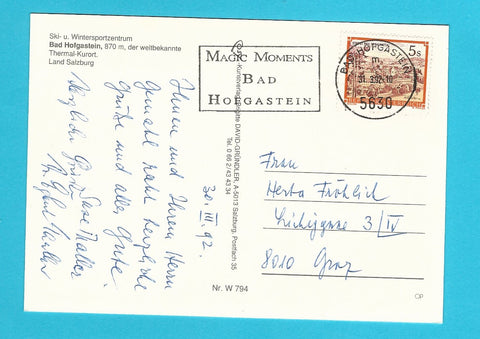 Ski- u. Wintersportzentrum
Bad Hofgastein, 870 m, der weitbekannte
Thermal-Kurort.
Land Salzburg
MAGIC MOMENTS
BAD
HOFGASTEIN
BAD HOFGASTEIN
31.3.92-10
5630
5s
Ihnen und Ihrem Herrn
Gemahl recht herzliche
Grüße und alles Gute.
30. III. 92.
Herzliche Grüße
DAVID-GRÜNDLER, A-5013 Salzburg, Postfach 35
Tel. 0 66 2/43 43 34
Frau
Herta Fröhlich
3/IV
8010 Graz
Nr. W 794
CP